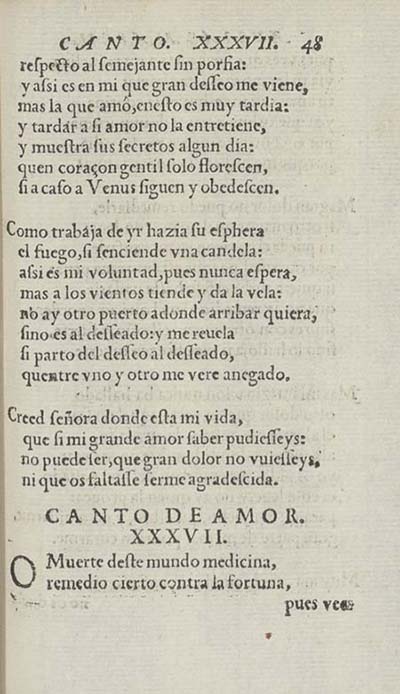 CANTO. XXXVII. 48
respecto al semejante sin porfia:
y assi es en mi que gran desseo me viene,
mas la que amò, enesto es muy tardia:
y tardar a si amor no la entretiene,
y muestra sus secretos algun dia:
quen coraçon gentil solo florescen,
si a caso a Venus siguen y obedescen.
Como trabája de yr hazia su esphera
el fuego, si senciende vna candela:
assi es mi voluntad, pues nunca espera,
mas a los vientos tiende y da la vela:
no ay otro puerto adonde arribar quiera,
sino es al desseado: y me reuela
si parto del desseo al desseado,
quentre vno y otro me vere anegado.
Creed señora donde esta mi vida,
que si mi grande amor saber pudiesseys:
no puede ser, que gran dolor no vuiesseys,
ni que os faltasse serme agradescida.
CANTO DE AMOR.
XXXVII.
O Muerte deste mundo medicina,
remedio cierto contra la fortuna,
pues vea